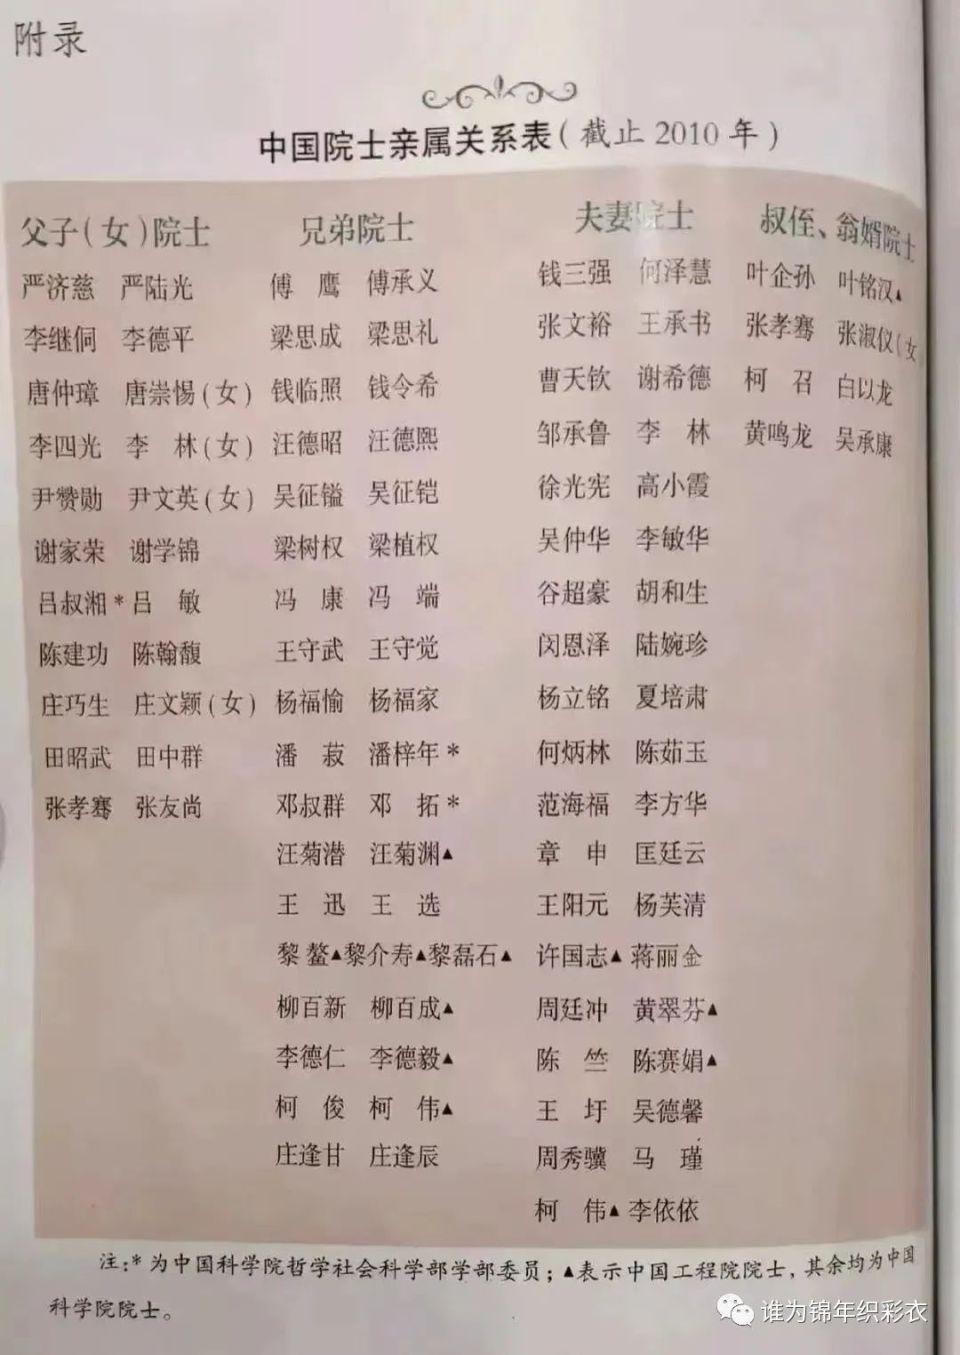 附录
中国院士亲属关系表(截止2010年)
父子(女)院士 兄弟院士 夫妻院士 叔侄、翁婿院士
严济慈 严陆光 傅 鹰 傅承义 钱三强 何泽慧 叶企孙 叶铭汉▲
李继侗 李德平 梁思成 梁思礼 张文裕 王承书 张孝骞 张淑仪(女
唐仲璋 唐崇惕(女) 钱临照 钱令希 曹天钦 谢希德 柯 召 白以龙
李四光 李 林(女) 汪德昭 汪德熙 邹承鲁 李 林 黄鸣龙 吴承康
尹赞勋 尹文英(女) 吴征镒 吴征铠 徐光宪 高小霞
谢家荣 谢学锦 梁树权 梁植权 吴仲华 李敏华
吕叔湘* 吕 敏 冯 康 冯 端 谷超豪 胡和生
陈建功 陈翰馥 王守武 王守觉 闵恩泽 陆婉珍
庄巧生 庄文颖(女) 杨福愉 杨福家 杨立铭 夏培肃
田昭武 田中群 潘 菽 潘梓年* 何炳林 陈茹玉
张孝骞 张友尚 邓叔群 邓 拓* 范海福 李方华
汪菊潜 汪菊渊▲ 章 申 匡廷云
王 迅 王 选 王阳元 杨芙清
黎 鳌▲ 黎介寿▲ 黎磊石▲ 许国志▲ 蒋丽金
柳百新 柳百成▲ 周廷冲 黄翠芬▲
李德仁 李德毅▲ 陈 竺 陈赛娟▲
柯 俊 柯 伟▲ 王 圩 吴德馨
庄逢甘 庄逢辰 周秀骥 马 瑾
柯 伟▲ 李依依
注:*为中国科学院哲学社会科学部学部委员;▲表示中国工程院院士,其余均为中国
科学院院士。
谁为锦年织彩衣